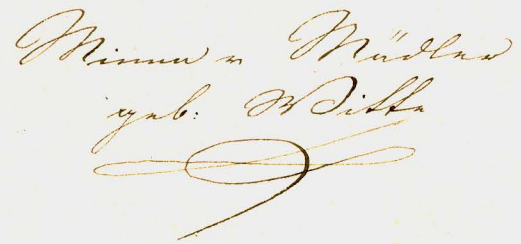 Minna v Mädler
geb: Witte